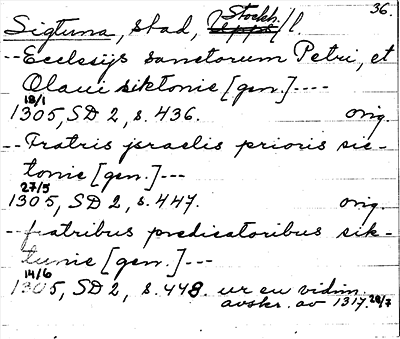 36.
Sigtuna, stad, Stockh. Upps/l.
--Ecclesijs sanctorum Petri, et
Olaui siktonie [gen.]----
18/1
1305, SD 2, s. 436. orig.
--Fratris jsraelis prioris sic-
tonie [gen.]---
27/5
1305, SD 2, s. 447. orig.
--fratribus predicatoribus sik-
tunie [gen.]---
14/6
1305, SD 2, s. 448. ur en vidim.
avskr. av 1317 28/7